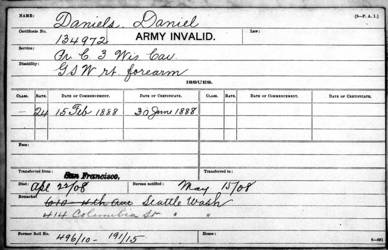 NAME: Daniels, Daniel (3-P. A. I.)
Certificate No. 134972 ARMY INVALID. Law:
Service: Pr C 3 Wis Cav
Disability: GSW rt forearm
ISSUES.
CLASS. RATE. DATE OF COMMENCEMENT. DATE OF CERTIFICATE. CLASS. RATE. DATE OF COMMENCEMENT. DATE OF CERTIFICATE.
24 15 Feb 1888 30 June 1888
Fees:
Transferred from: San Francisco.
Died: Apl 22/08 Bureau notified: May 15/08
Remarks: 610 - 4th Ave Seattle Wash
414 Columbia St " "
Former Roll No. 496/10 - 191/15